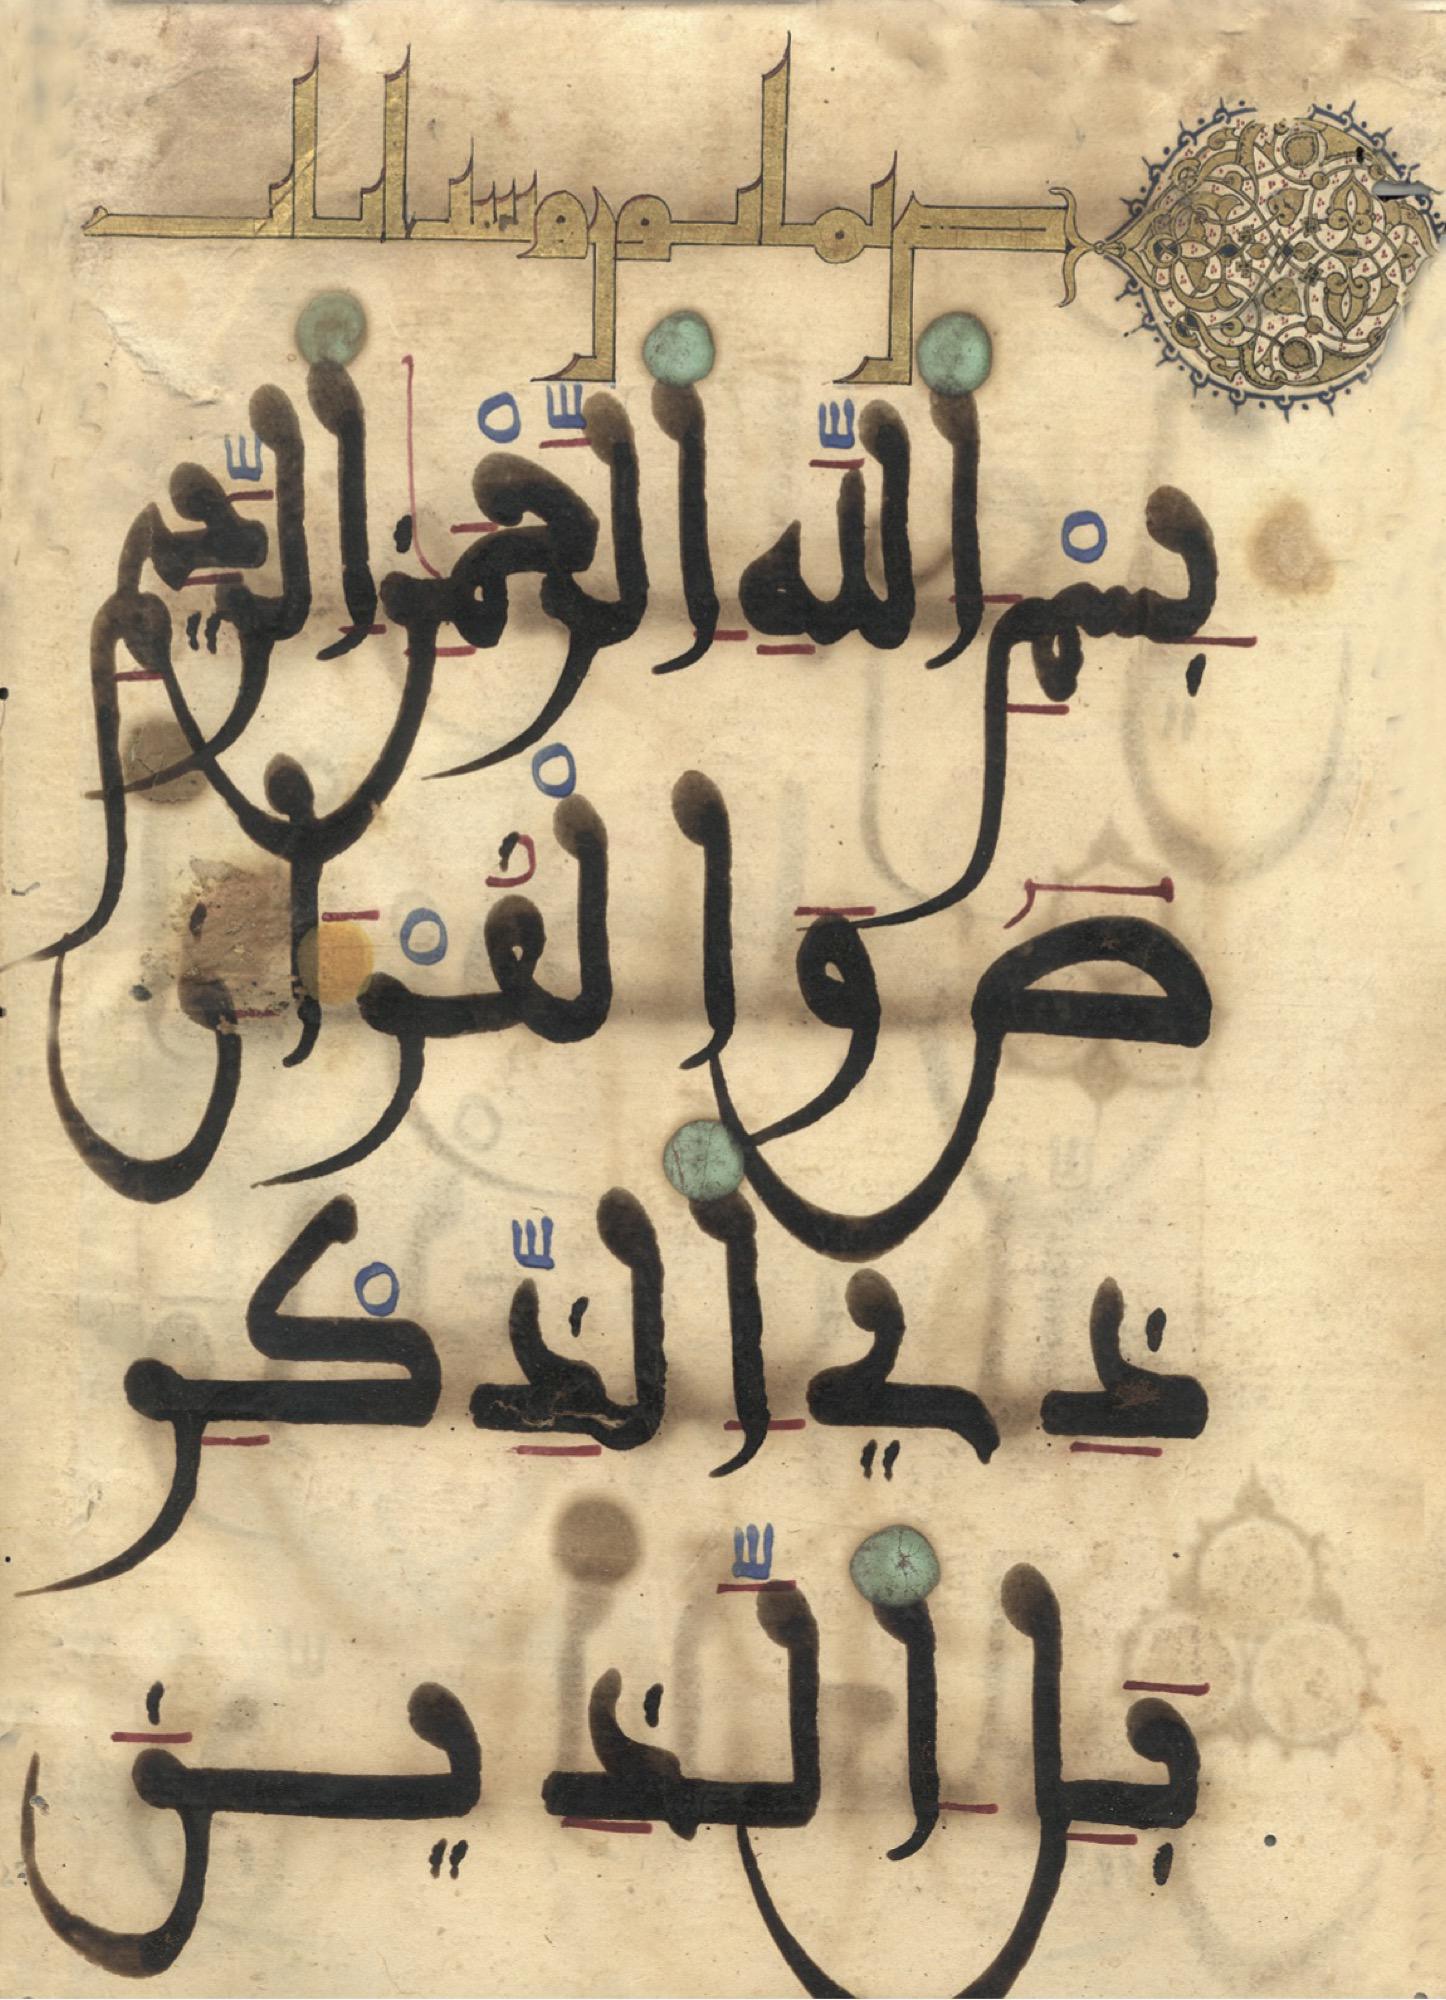 ص ثمانون وست ايات
بِسْمِ اللَّهِ الرَّحْمَٰنِ الرَّحِيمِ
صٓ وَالْقُرْءَانِ
ذِے الذِّكْرِ
بَلِ الَّذِينَ